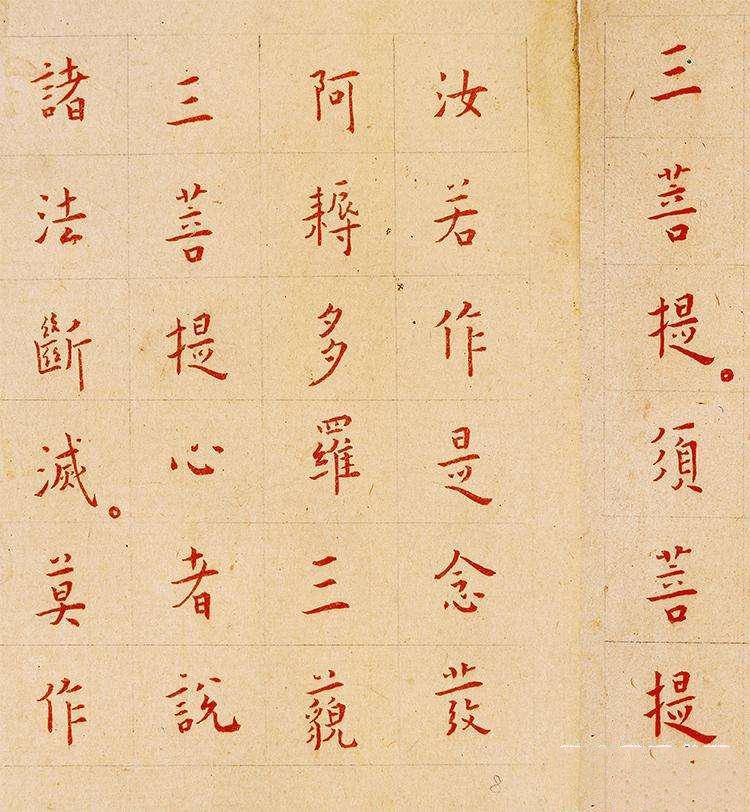 三菩提。須菩提
汝若作是念發
阿耨多羅三藐
三菩提心者說
諸法斷滅。莫作
8